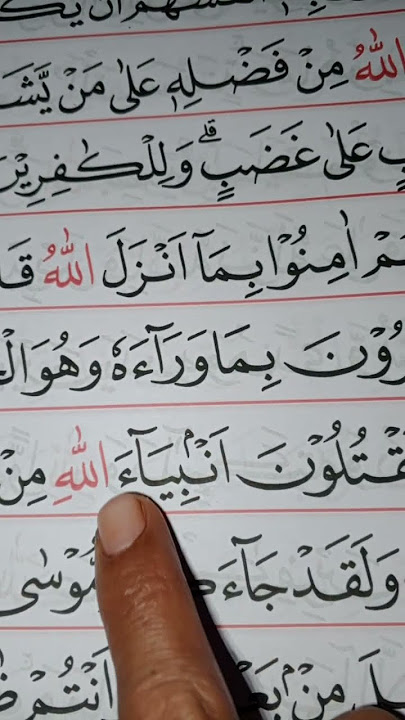 اللّٰهُ مِنْ فَضْلِهٖ عَلٰى مَنْ يَّشَـ
ـبٍ عَلٰى غَضَبٍ ۗ وَلِلْكٰفِرِيْنَ
ـمْ اٰمِنُوْا بِمَآ اَنْزَلَ اللّٰهُ قَا
ـرُوْنَ بِمَا وَرَآءَهٗ وَهُوَ الْـ
ـقْتُلُوْنَ اَنْۢبِيَآءَ اللّٰهِ مِنْ
وَلَقَدْ جَآءَكـ مُّوْسٰى
ـلَ مِنْۢ بَعْـ اَنْتُمْ